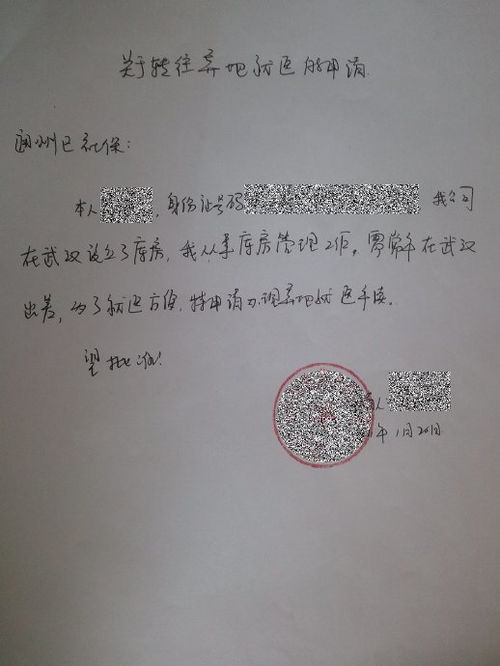 关于转往异地就医的申请
通州区社保：
本人，身份证号码 我公司
在武汉设立了库房，我从事库房管理工作。需常年在武汉
出差，为了就医方便，特申请办理异地就医手续。
望批准！
人
年1月20日